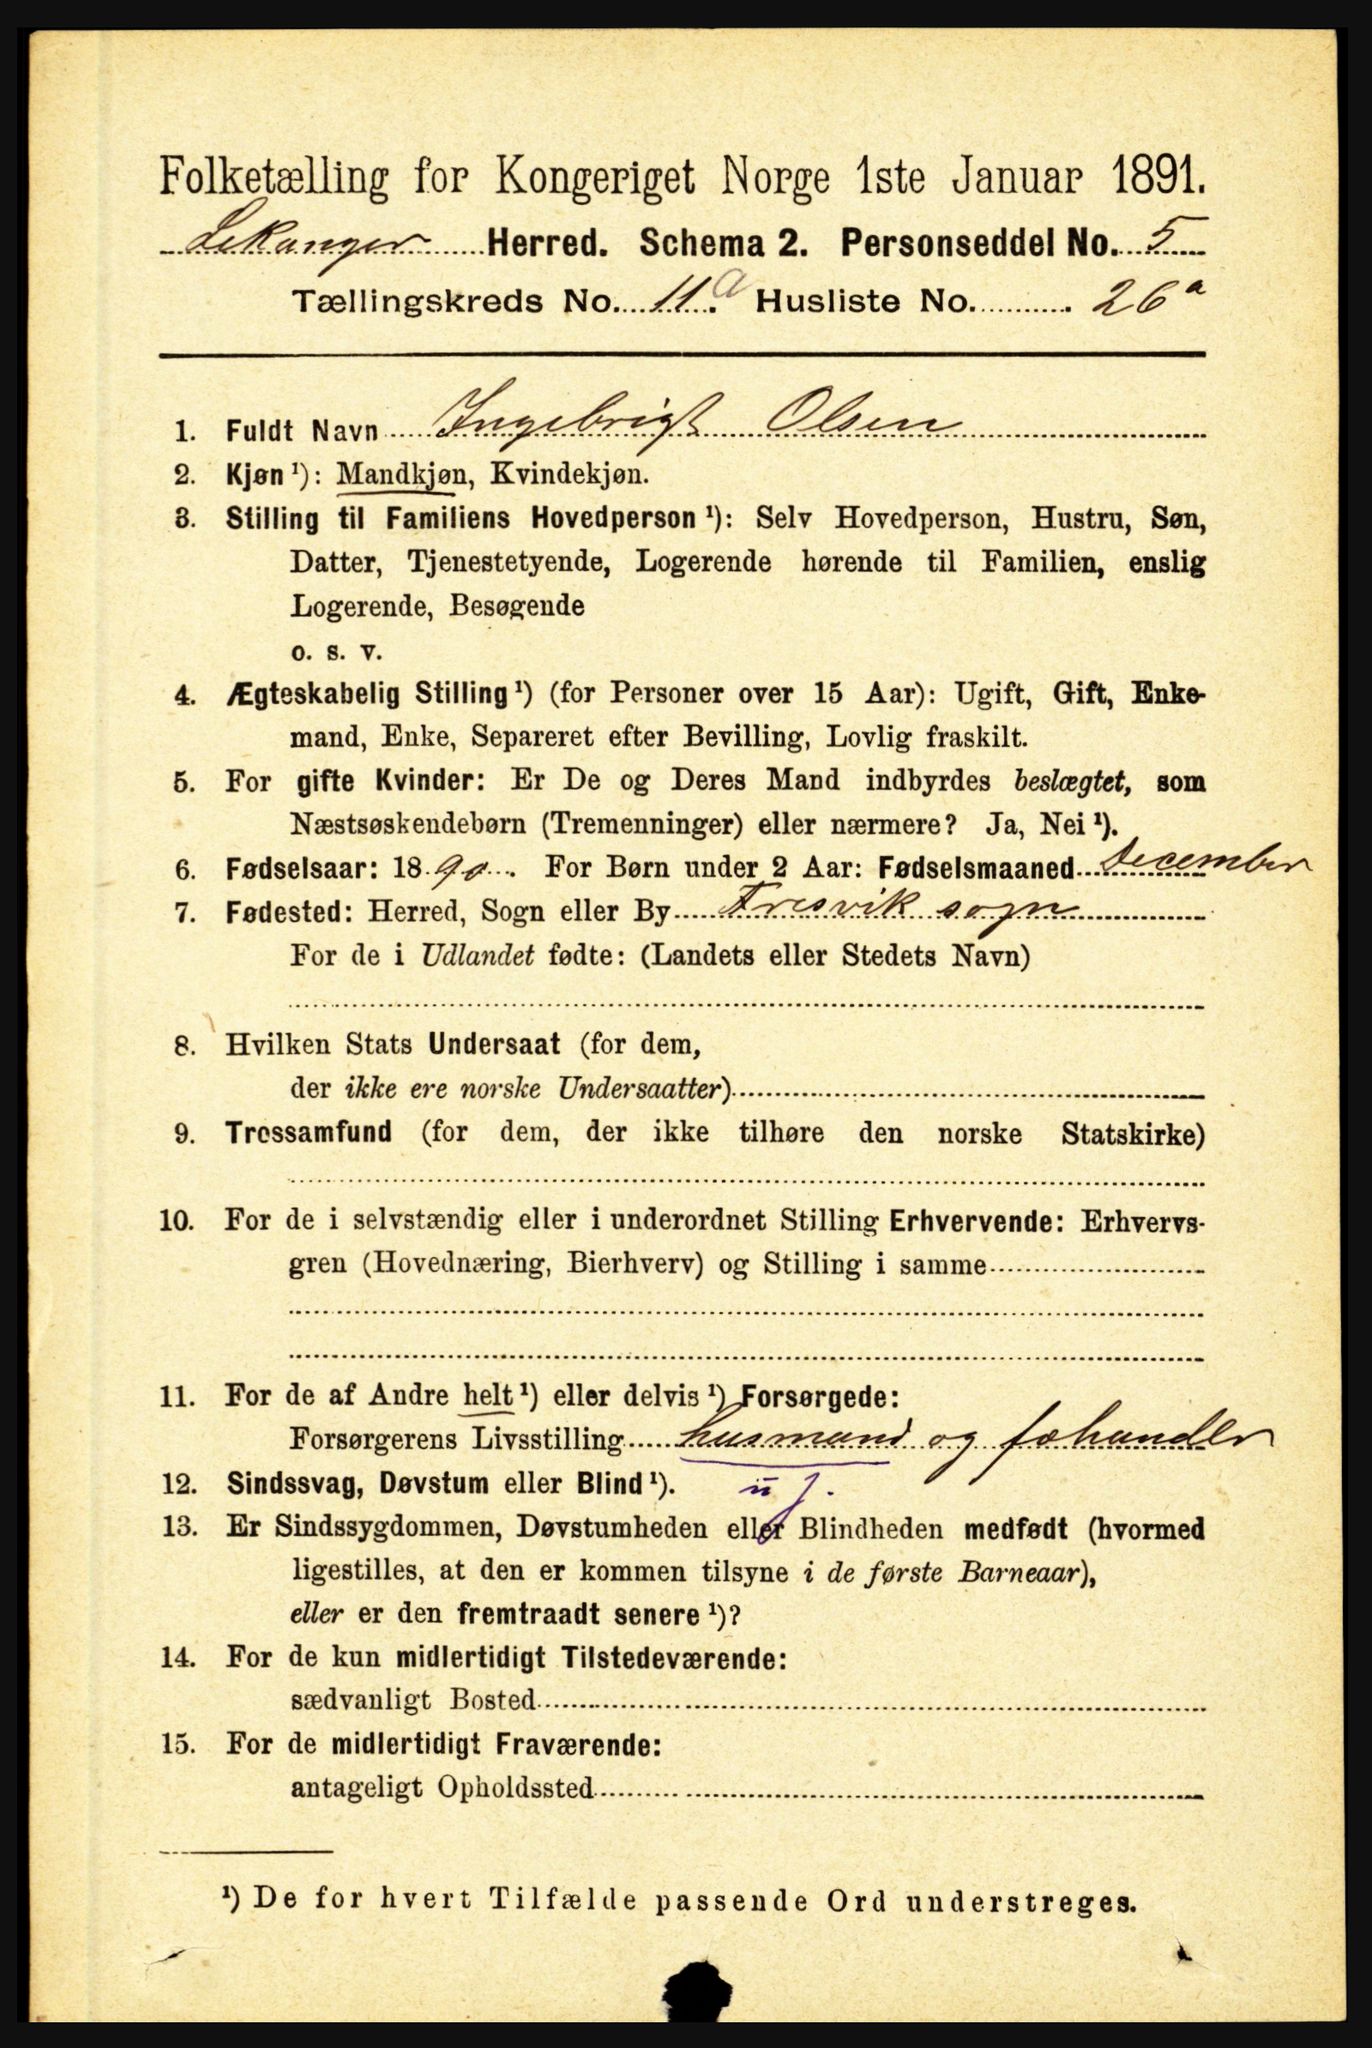 Folketælling for Kongeriget Norge 1ste Januar 1891.
Lekanger Herred. Schema 2. Personseddel No. 5
Tællingskreds No. 11.a Husliste No. 26 a
1. Fuldt Navn Ingebrigt Olsen
2. Kjøn ¹): Mandkjøn, Kvindekjøn.
3. Stilling til Familiens Hovedperson ¹): Selv Hovedperson, Hustru, Søn,
Datter, Tjenestetyende, Logerende hørende til Familien, enslig
Logerende, Besøgende
o. s. v.
4. Ægteskabelig Stilling ¹) (for Personer over 15 Aar): Ugift, Gift, Enke-
mand, Enke, Separeret efter Bevilling, Lovlig fraskilt.
5. For gifte Kvinder: Er De og Deres Mand indbyrdes beslægtet, som
Næstsøskendebørn (Tremenninger) eller nærmere? Ja, Nei ¹).
6. Fødselsaar: 1890. For Børn under 2 Aar: Fødselsmaaned December
7. Fødested: Herred, Sogn eller By Fresvik sogn
For de i Udlandet fødte: (Landets eller Stedets Navn)
8. Hvilken Stats Undersaat (for dem,
der ikke ere norske Undersaatter)
9. Trossamfund (for dem, der ikke tilhøre den norske Statskirke)
10. For de i selvstændig eller i underordnet Stilling Erhvervende: Erhvervs-
gren (Hovednæring, Bierhverv) og Stilling i samme
11. For de af Andre helt ¹) eller delvis ¹) Forsørgede:
Forsørgerens Livsstilling husmand og fæhandler
12. Sindssvag, Døvstum eller Blind ¹).
13. Er Sindssygdommen, Døvstumheden eller Blindheden medfødt (hvormed
ligestilles, at den er kommen tilsyne i de første Barneaar),
eller er den fremtraadt senere ¹)?
14. For de kun midlertidigt Tilstedeværende:
sædvanligt Bosted
15. For de midlertidigt Fraværende:
antageligt Opholdssted
¹) De for hvert Tilfælde passende Ord understreges.